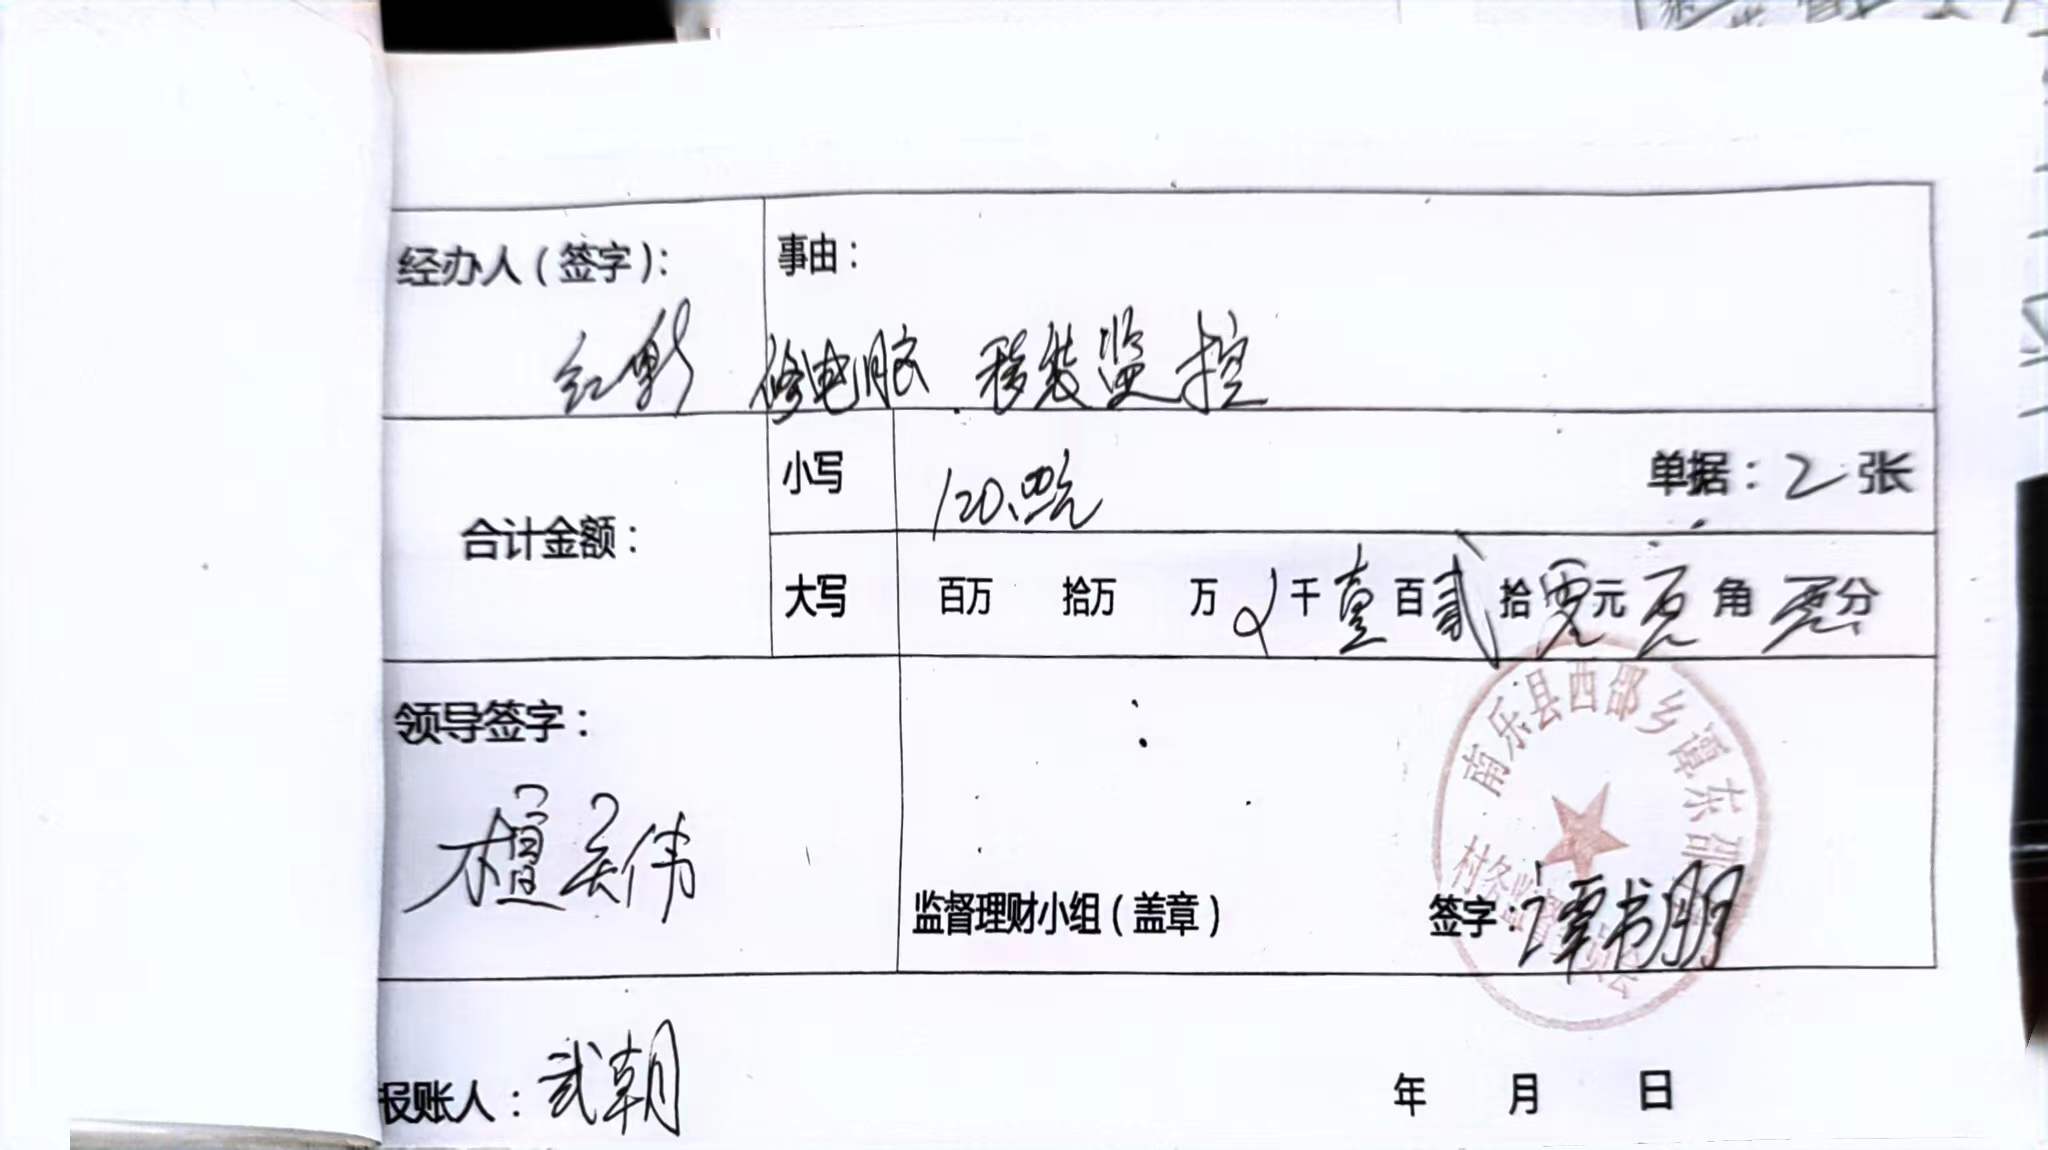 经办人（签字）：
红彩
事由：
修电脑 移装监控
合计金额：
小写
120.00元
单据：2张
大写
百万 拾万 万 千壹百贰拾零元零角零分
领导签字：
檀关伟
监督理财小组（盖章）
签字：谭书朋
南乐县西邵乡谭东邵
村务监督委员会
报账人：武朝
年 月 日